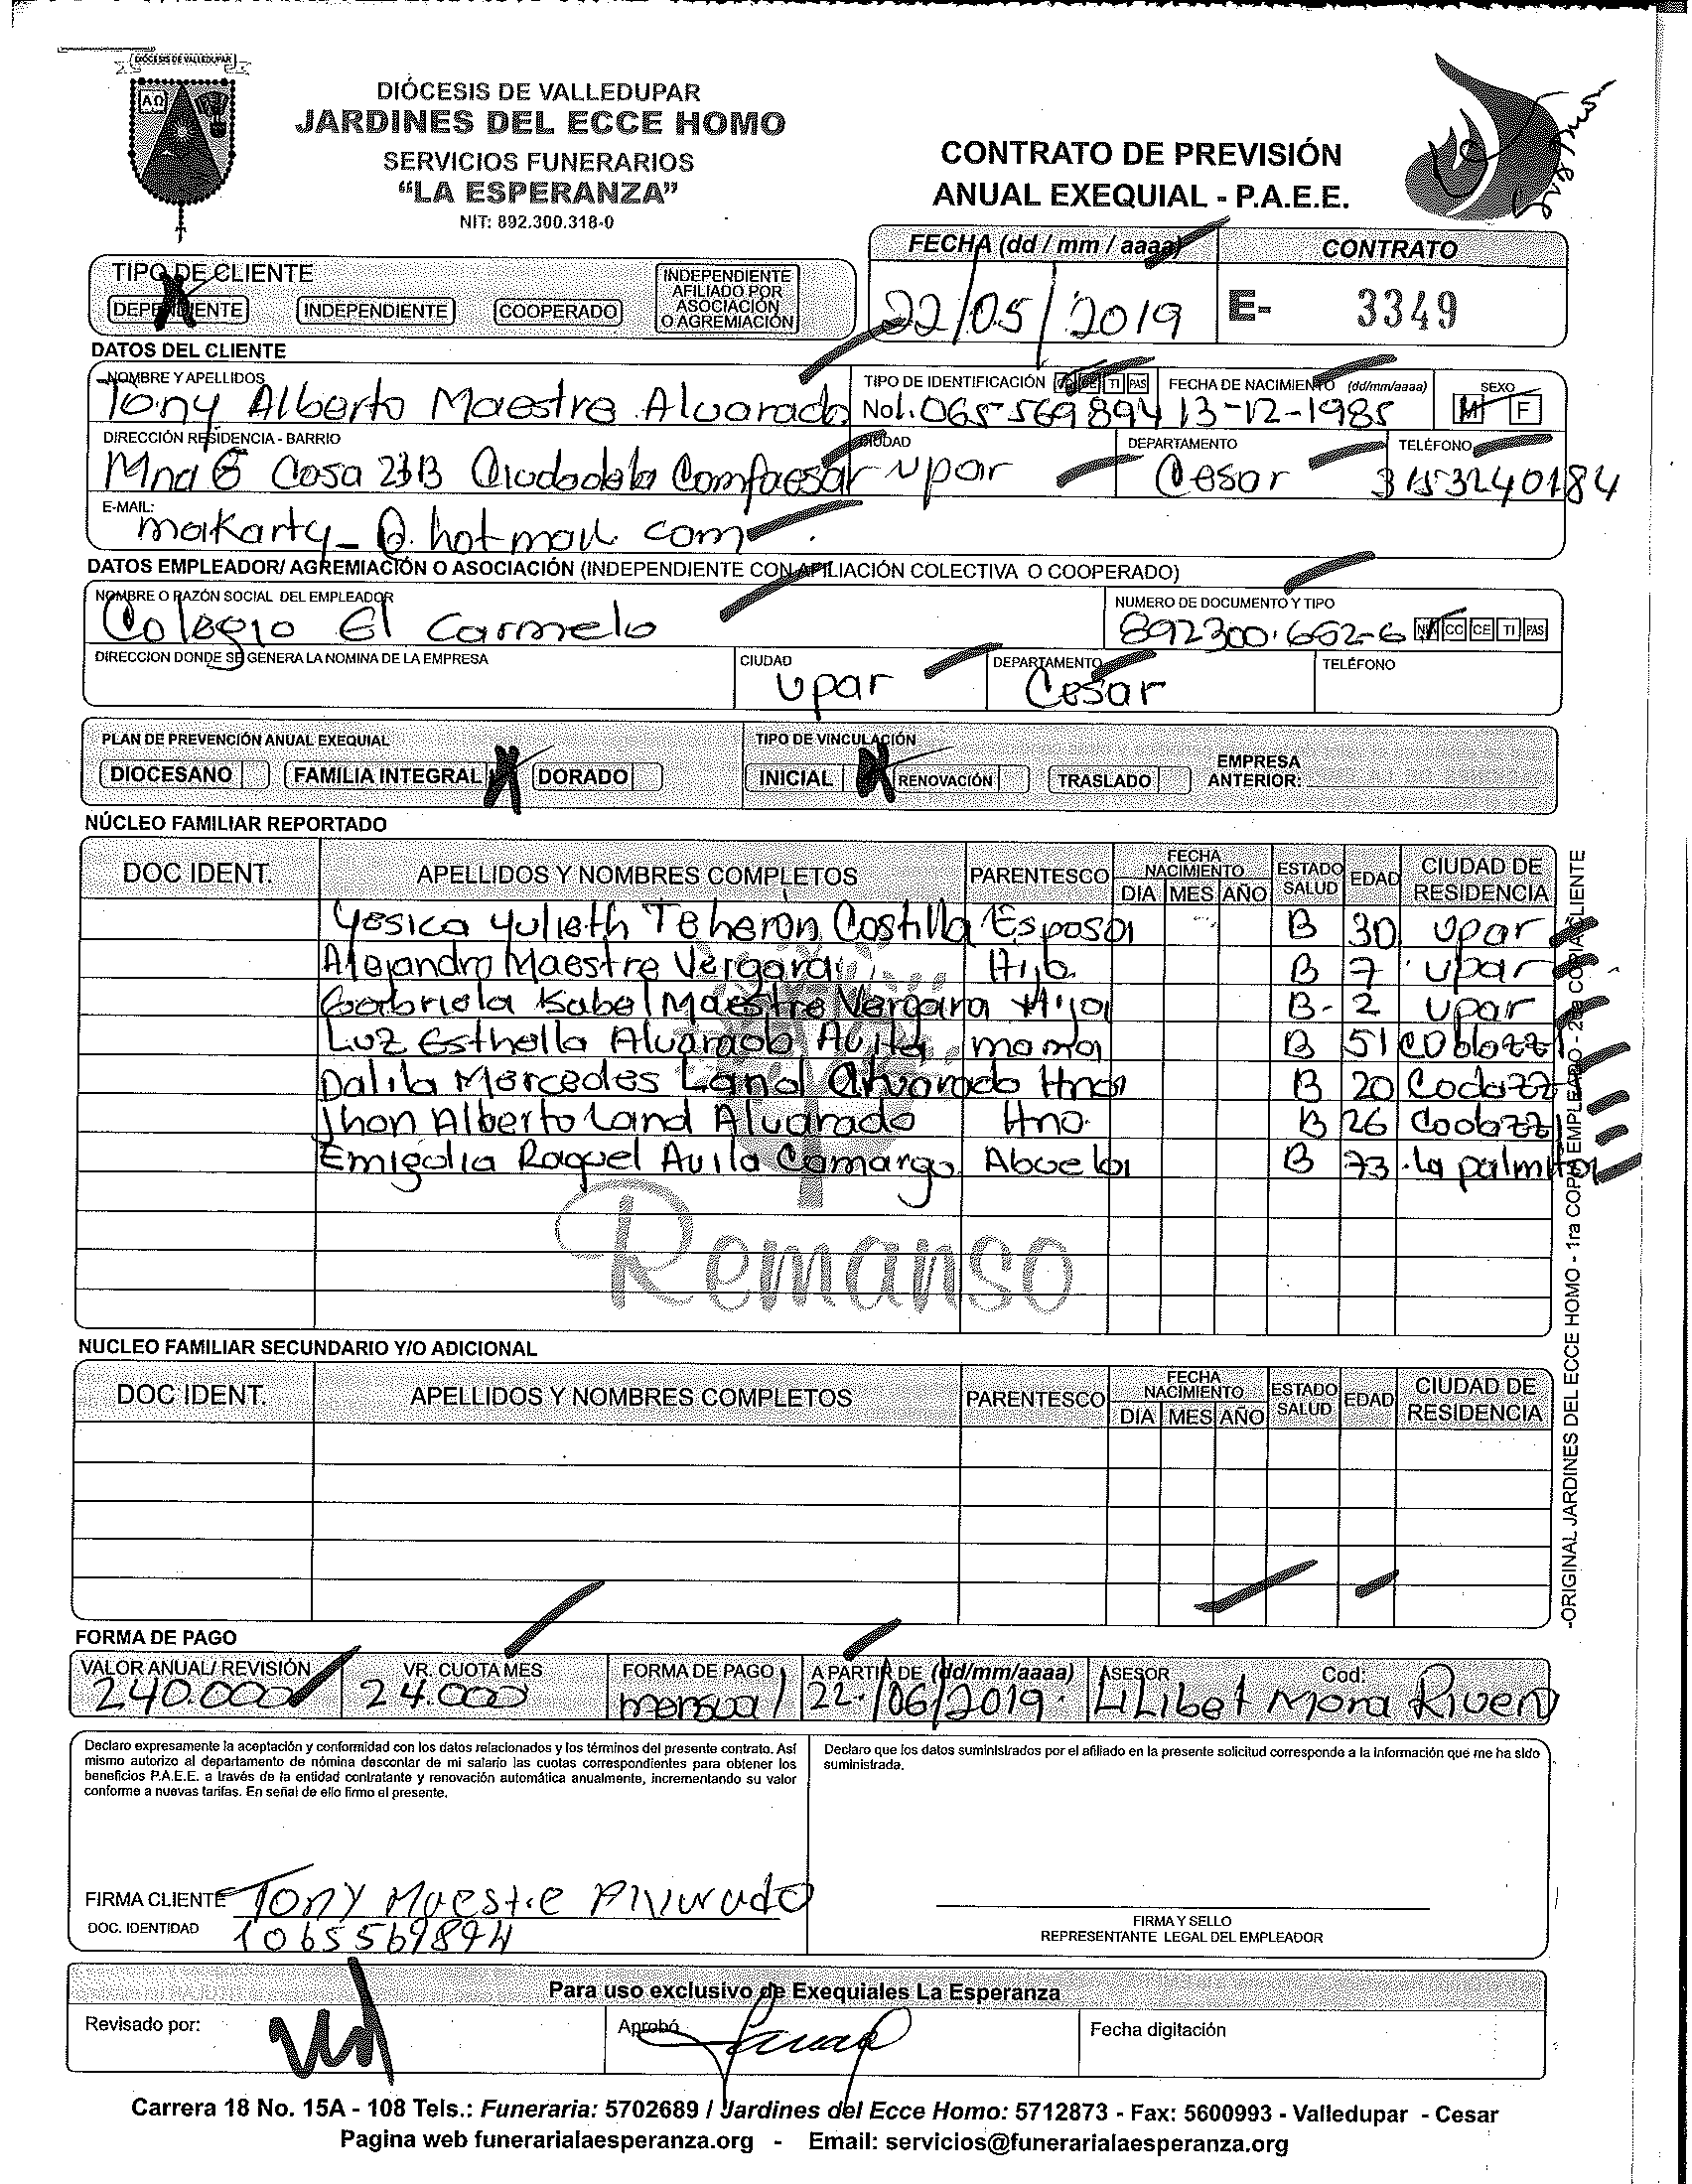 DIÓCESIS DE VALLEDUPAR
DIÓCESIS DE VALLEDUPAR
JARDINES DEL ECCE HOMO
SERVICIOS FUNERARIOS
"LA ESPERANZA"
NIT: 892.300.318-0
CONTRATO DE PREVISIÓN
ANUAL EXEQUIAL - P.A.E.E.
FECHA (dd / mm / aaaa) CONTRATO
22/05/2019 E- 3349
TIPO DE CLIENTE
DEPENDIENTE INDEPENDIENTE COOPERADO INDEPENDIENTE AFILIADO POR ASOCIACIÓN O AGREMIACIÓN
DATOS DEL CLIENTE
NOMBRE Y APELLIDOS TIPO DE IDENTIFICACIÓN CC CE TI PAS FECHA DE NACIMIENTO (dd/mm/aaaa) SEXO
Tony Alberto Maestre Alvarado No1.065-569894 13-12-1985 M F
DIRECCIÓN RESIDENCIA - BARRIO CIUDAD DEPARTAMENTO TELÉFONO
Casa Ciudadela Comfacesar Upar Cesar 3153240184
E-MAIL:
makarty_@.hotmail com
DATOS EMPLEADOR/ AGREMIACIÓN O ASOCIACIÓN (INDEPENDIENTE CON AFILIACIÓN COLECTIVA O COOPERADO)
NOMBRE O RAZÓN SOCIAL DEL EMPLEADOR NUMERO DE DOCUMENTO Y TIPO
Colegio El Carmelo 892300.662-6 NIT CC CE TI PAS
DIRECCION DONDE SE GENERA LA NOMINA DE LA EMPRESA CIUDAD DEPARTAMENTO TELÉFONO
Upar Cesar
PLAN DE PREVENCIÓN ANUAL EXEQUIAL TIPO DE VINCULACIÓN
DIOCESANO FAMILIA INTEGRAL X DORADO INICIAL X RENOVACIÓN TRASLADO EMPRESA ANTERIOR:
NÚCLEO FAMILIAR REPORTADO
DOC IDENT. APELLIDOS Y NOMBRES COMPLETOS PARENTESCO FECHA NACIMIENTO DIA MES AÑO ESTADO SALUD EDAD CIUDAD DE RESIDENCIA
Yesica Yulieth Teheran Costilla Esposa B 30 Upar
Alejandro Maestre Vergara Hijo B 7 Upar
Gabriela Isabel Maestre Vergara Hija B- 2 Upar
Luz Esthella Alvarado Avila mama B 51 Codazzi
Dalila Mercedes Land Alvarado Hna B 20 Codazzi
Jhon Alberto Land Alvarado Hno. B 26 Codazzi
Emigdia Raquel Avila Camargo Abuela B 73 La palmita
Remanso
NUCLEO FAMILIAR SECUNDARIO Y/O ADICIONAL
DOC IDENT. APELLIDOS Y NOMBRES COMPLETOS PARENTESCO FECHA NACIMIENTO DIA MES AÑO ESTADO SALUD EDAD CIUDAD DE RESIDENCIA
-ORIGINAL JARDINES DEL ECCE HOMO - 1ra COPIA EMPLEADO - 2da COPIA CLIENTE
FORMA DE PAGO
VALOR ANUAL/ REVISIÓN VR. CUOTA MES FORMA DE PAGO A PARTIR DE (dd/mm/aaaa) ASESOR Cod:
240.000 24.000 mensual 22/06/2019 Lilibet Mora Rivero
Declaro expresamente la aceptación y conformidad con los datos relacionados y los términos del presente contrato. Así
mismo autorizo al departamento de nómina descontar de mi salario las cuotas correspondientes para obtener los
beneficios P.A.E.E. a través de la entidad contratante y renovación automática anualmente, incrementando su valor
conforme a nuevas tarifas. En señal de ello firmo el presente.
Declaro que los datos suministrados por el afiliado en la presente solicitud corresponde a la información que me ha sido
suministrada.
FIRMA CLIENTE Tony Maestre Alvarado
DOC. IDENTIDAD 1065569894
FIRMA Y SELLO
REPRESENTANTE LEGAL DEL EMPLEADOR
Para uso exclusivo de Exequiales La Esperanza
Revisado por: Aprobó Fecha digitación
Carrera 18 No. 15A - 108 Tels.: Funeraria: 5702689 / Jardines del Ecce Homo: 5712873 - Fax: 5600993 - Valledupar - Cesar
Pagina web funerarialaesperanza.org - Email: servicios@funerarialaesperanza.org